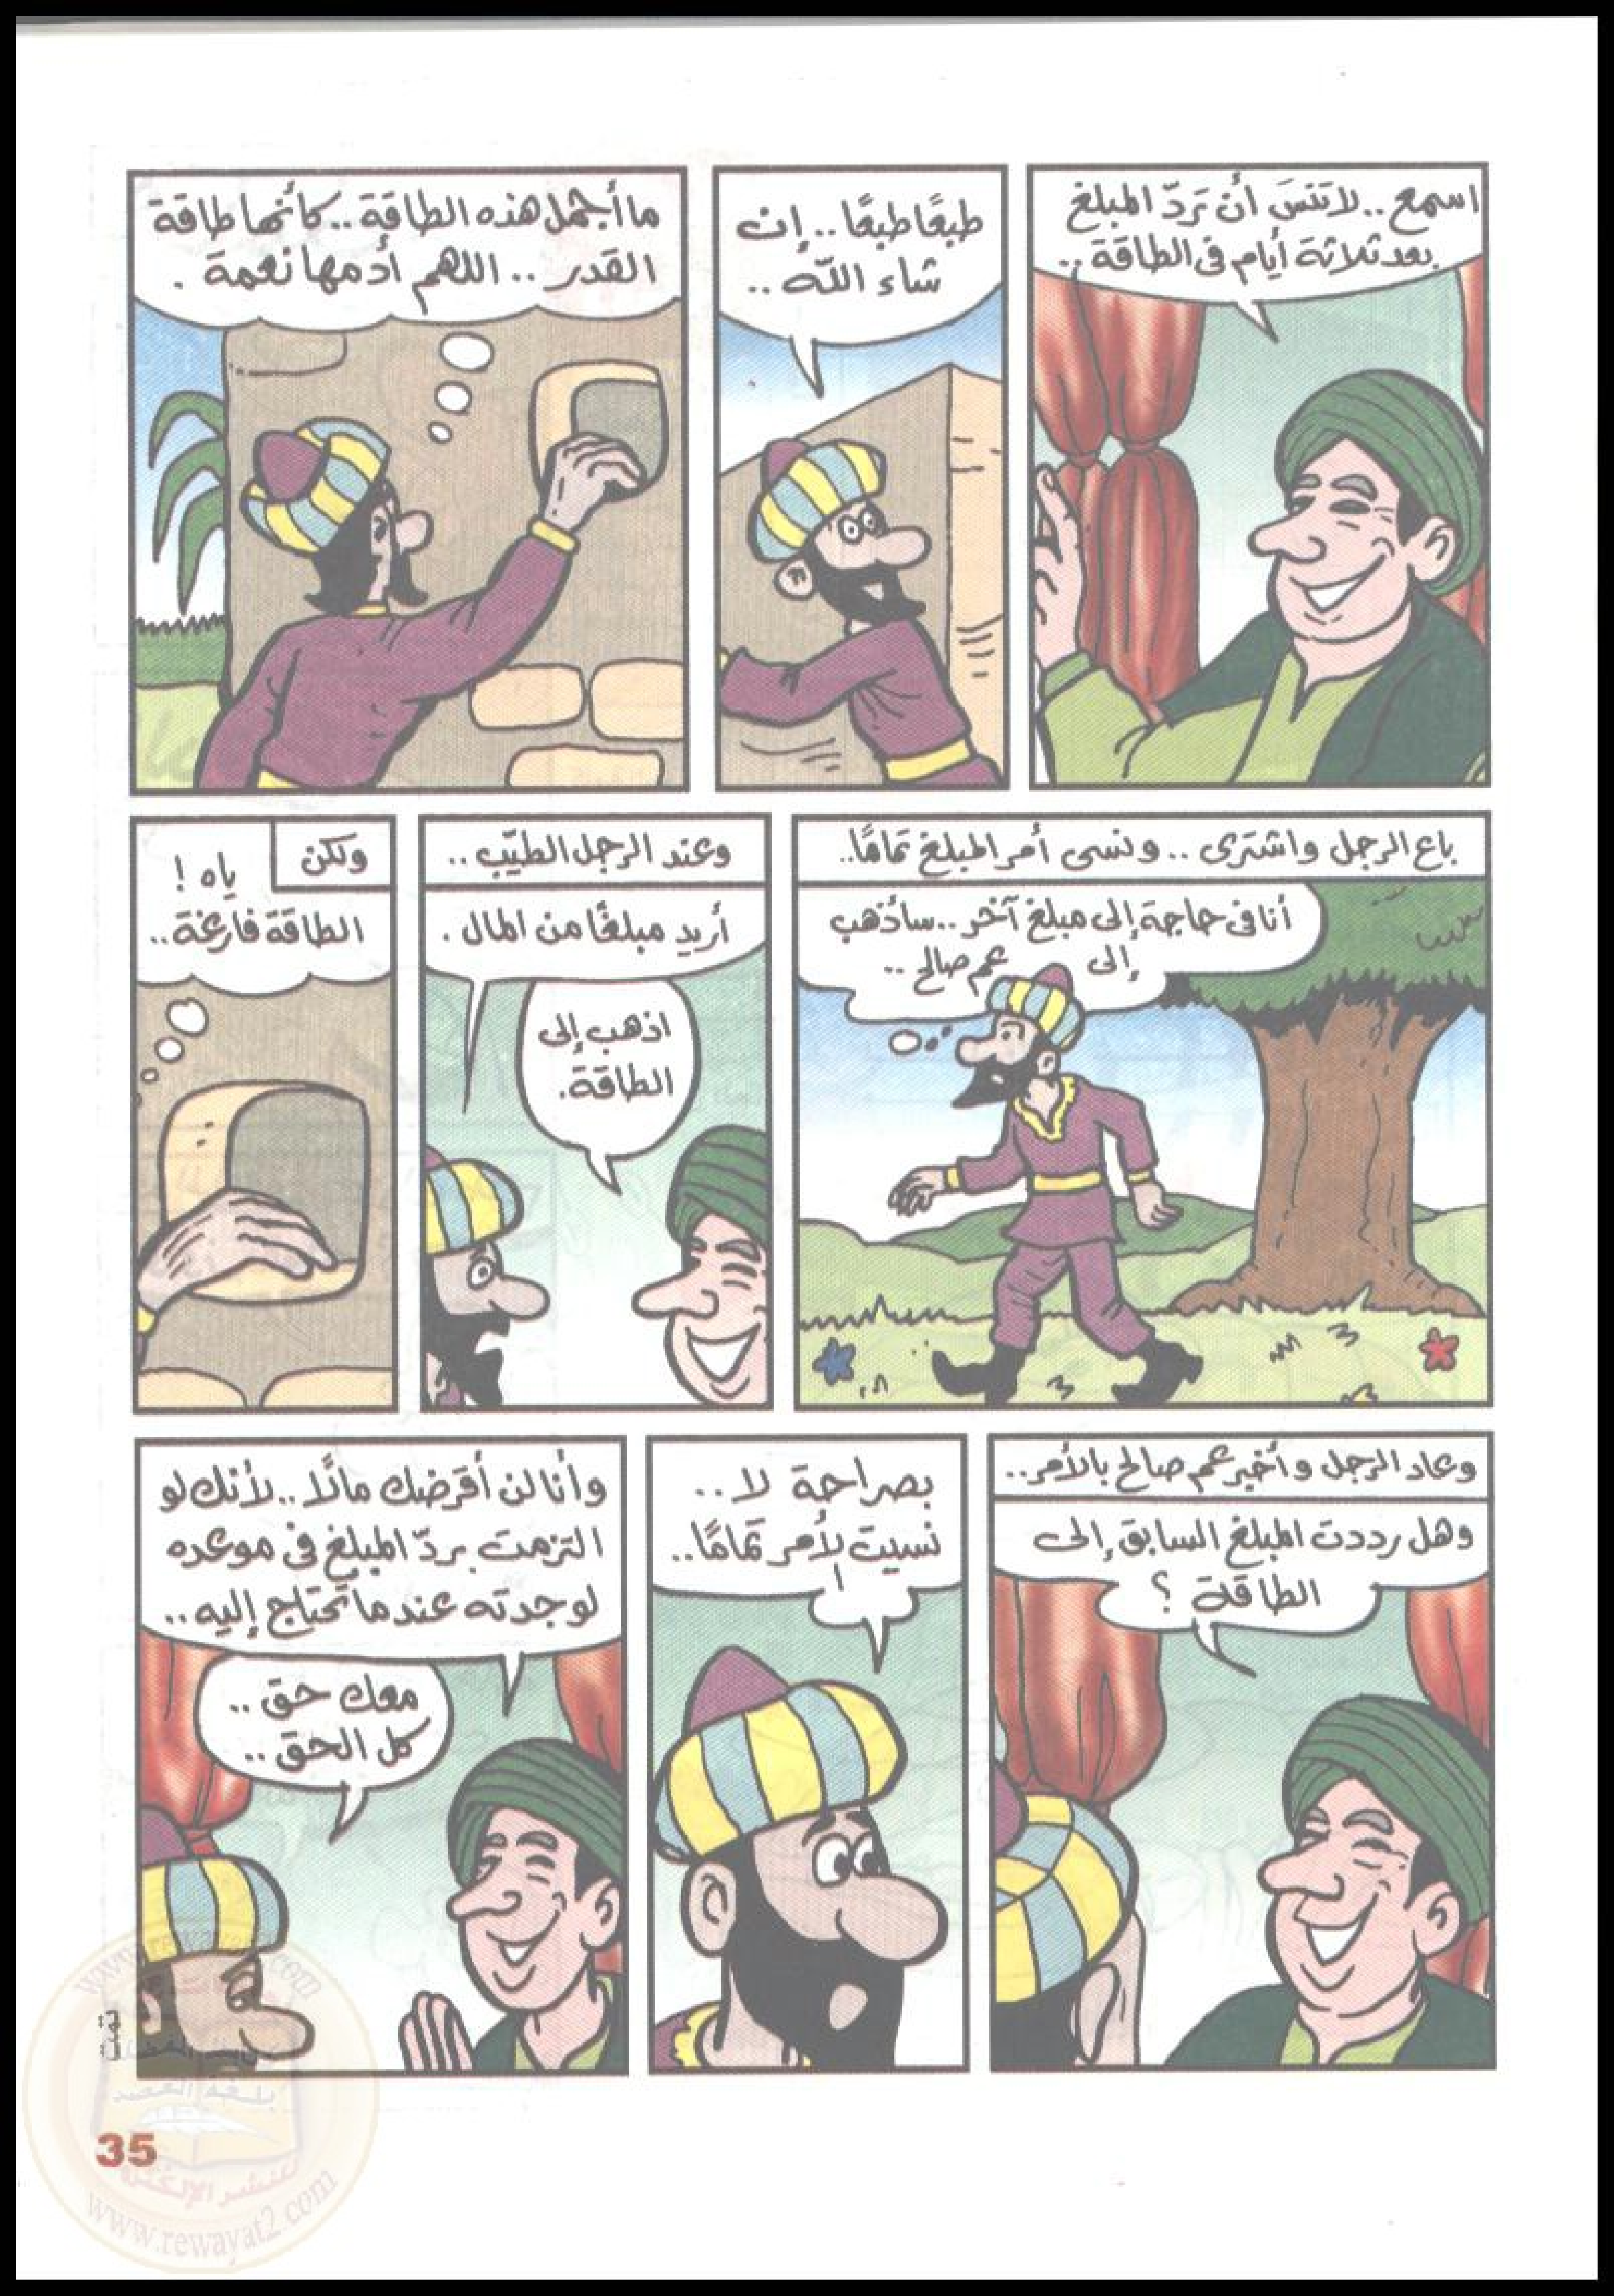 اسمع.. لا تَنسَ أن تَردّ المبلغ
بعد ثلاثة أيام فى الطاقة..
طبعًا طبعًا.. إن
شاء اللّه..
ما أجمل هذه الطاقة.. كأنها طاقة
القدر.. اللهم أدمها نعمة.
باع الرجل واشترى.. ونسى أمر المبلغ تمامًا..
أنا فى حاجة إلى مبلغ آخر.. سأذهب
إلى عم صالح..
وعند الرجل الطيّب..
أريد مبلغًا من المال.
اذهب إلى
الطاقة.
ولكن
ياه!
الطاقة فارغة..
وعاد الرجل وأخبر عم صالح بالأمر..
وهل رددت المبلغ السابق إلى
الطاقة؟
بصراحة لا..
نسيت الأمر تمامًا..
وأنا لن أقرضك مالًا.. لأنك لو
التزمت بردّ المبلغ فى موعده
لوجدته عندما تحتاج إليه..
معك حق..
كل الحق..
تمت
35
www.rewayat2.com